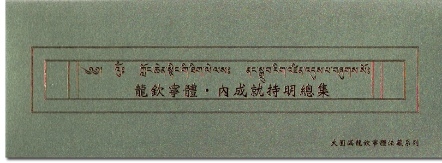 ༄༅། །ཀློང་ཆེན་སྙིང་གི་ཐིག་ལེ་ལས༔ ནང་སྒྲུབ་རིག་འཛིན་འདུས་པ་བཞུགས་སོ༔
龍欽寧體·內成就持明總集
大圓滿龍欽寧體法藏系列